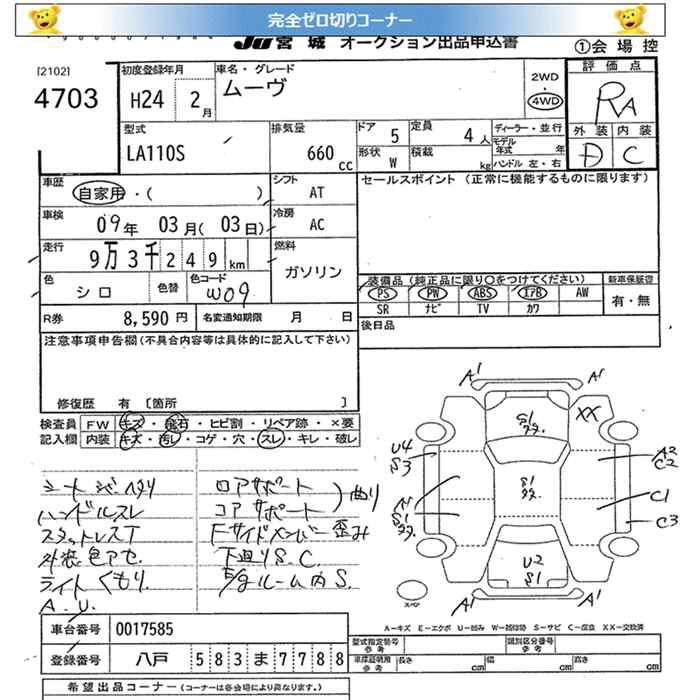 完全ゼロ切りコーナー
JU 宮城 オークション出品申込書
①会場控
[2102]
4703
初度登録年月
H24 2月
車名・グレード
ムーヴ
2WD
・
4WD
評価点
RA
外装 内装
D C
型式
LA110S
排気量
660 cc
ドア 5
定員 4人
形状 W
積載 kg
ディーラー・並行
モデル年式 年
ハンドル 左・右
車歴
自家用・( )
シフト AT
車検
09年 03月(03日)
冷房 AC
走行
9万3千249km
燃料
ガソリン
色 シロ
色替
色コード W09
R券 8,590円
名変通知期限 月 日
セールスポイント (正常に機能するものに限ります)
装備品 (純正品に限り○をつけてください)
新車保証書
PS PW ABS エアB AW
SR ナビ TV カワ
有・無
後日品
注意事項申告欄(不具合内容等は具体的に記入して下さい)
修復歴 有 [箇所 ]
検査員 FW キズ・飛石・ヒビ割・リペア跡・×要
記入欄 内装 キズ・汚レ・コゲ・穴・スレ・キレ・破レ
シートシワヘタリ
ハンドルスレ
スタットレスT
外装色アセ
ライトくもり
A.U.
ロアサポート
コアサポート
曲り
Fサイドメンバー歪み
下廻りS.C.
E/gルーム内S.
A1
A1
S1
タタ.
XX
U4
S3
A2
C2
S1
タタ.
A1
S1
タタ.
C1
C3
U2
S1
A1
A1
スペア
A－キズ E－エクボ U－凹み W－補修跡 S－サビ C－腐食 XX－交換済
車台番号 0017585
登録番号 八戸 583ま7788
型式指定番号
参考
類別区分番号
参考
車庫証明用
参考
長さ cm 幅 cm 高さ cm
希望出品コーナー (コーナーは各会場により異なります。)